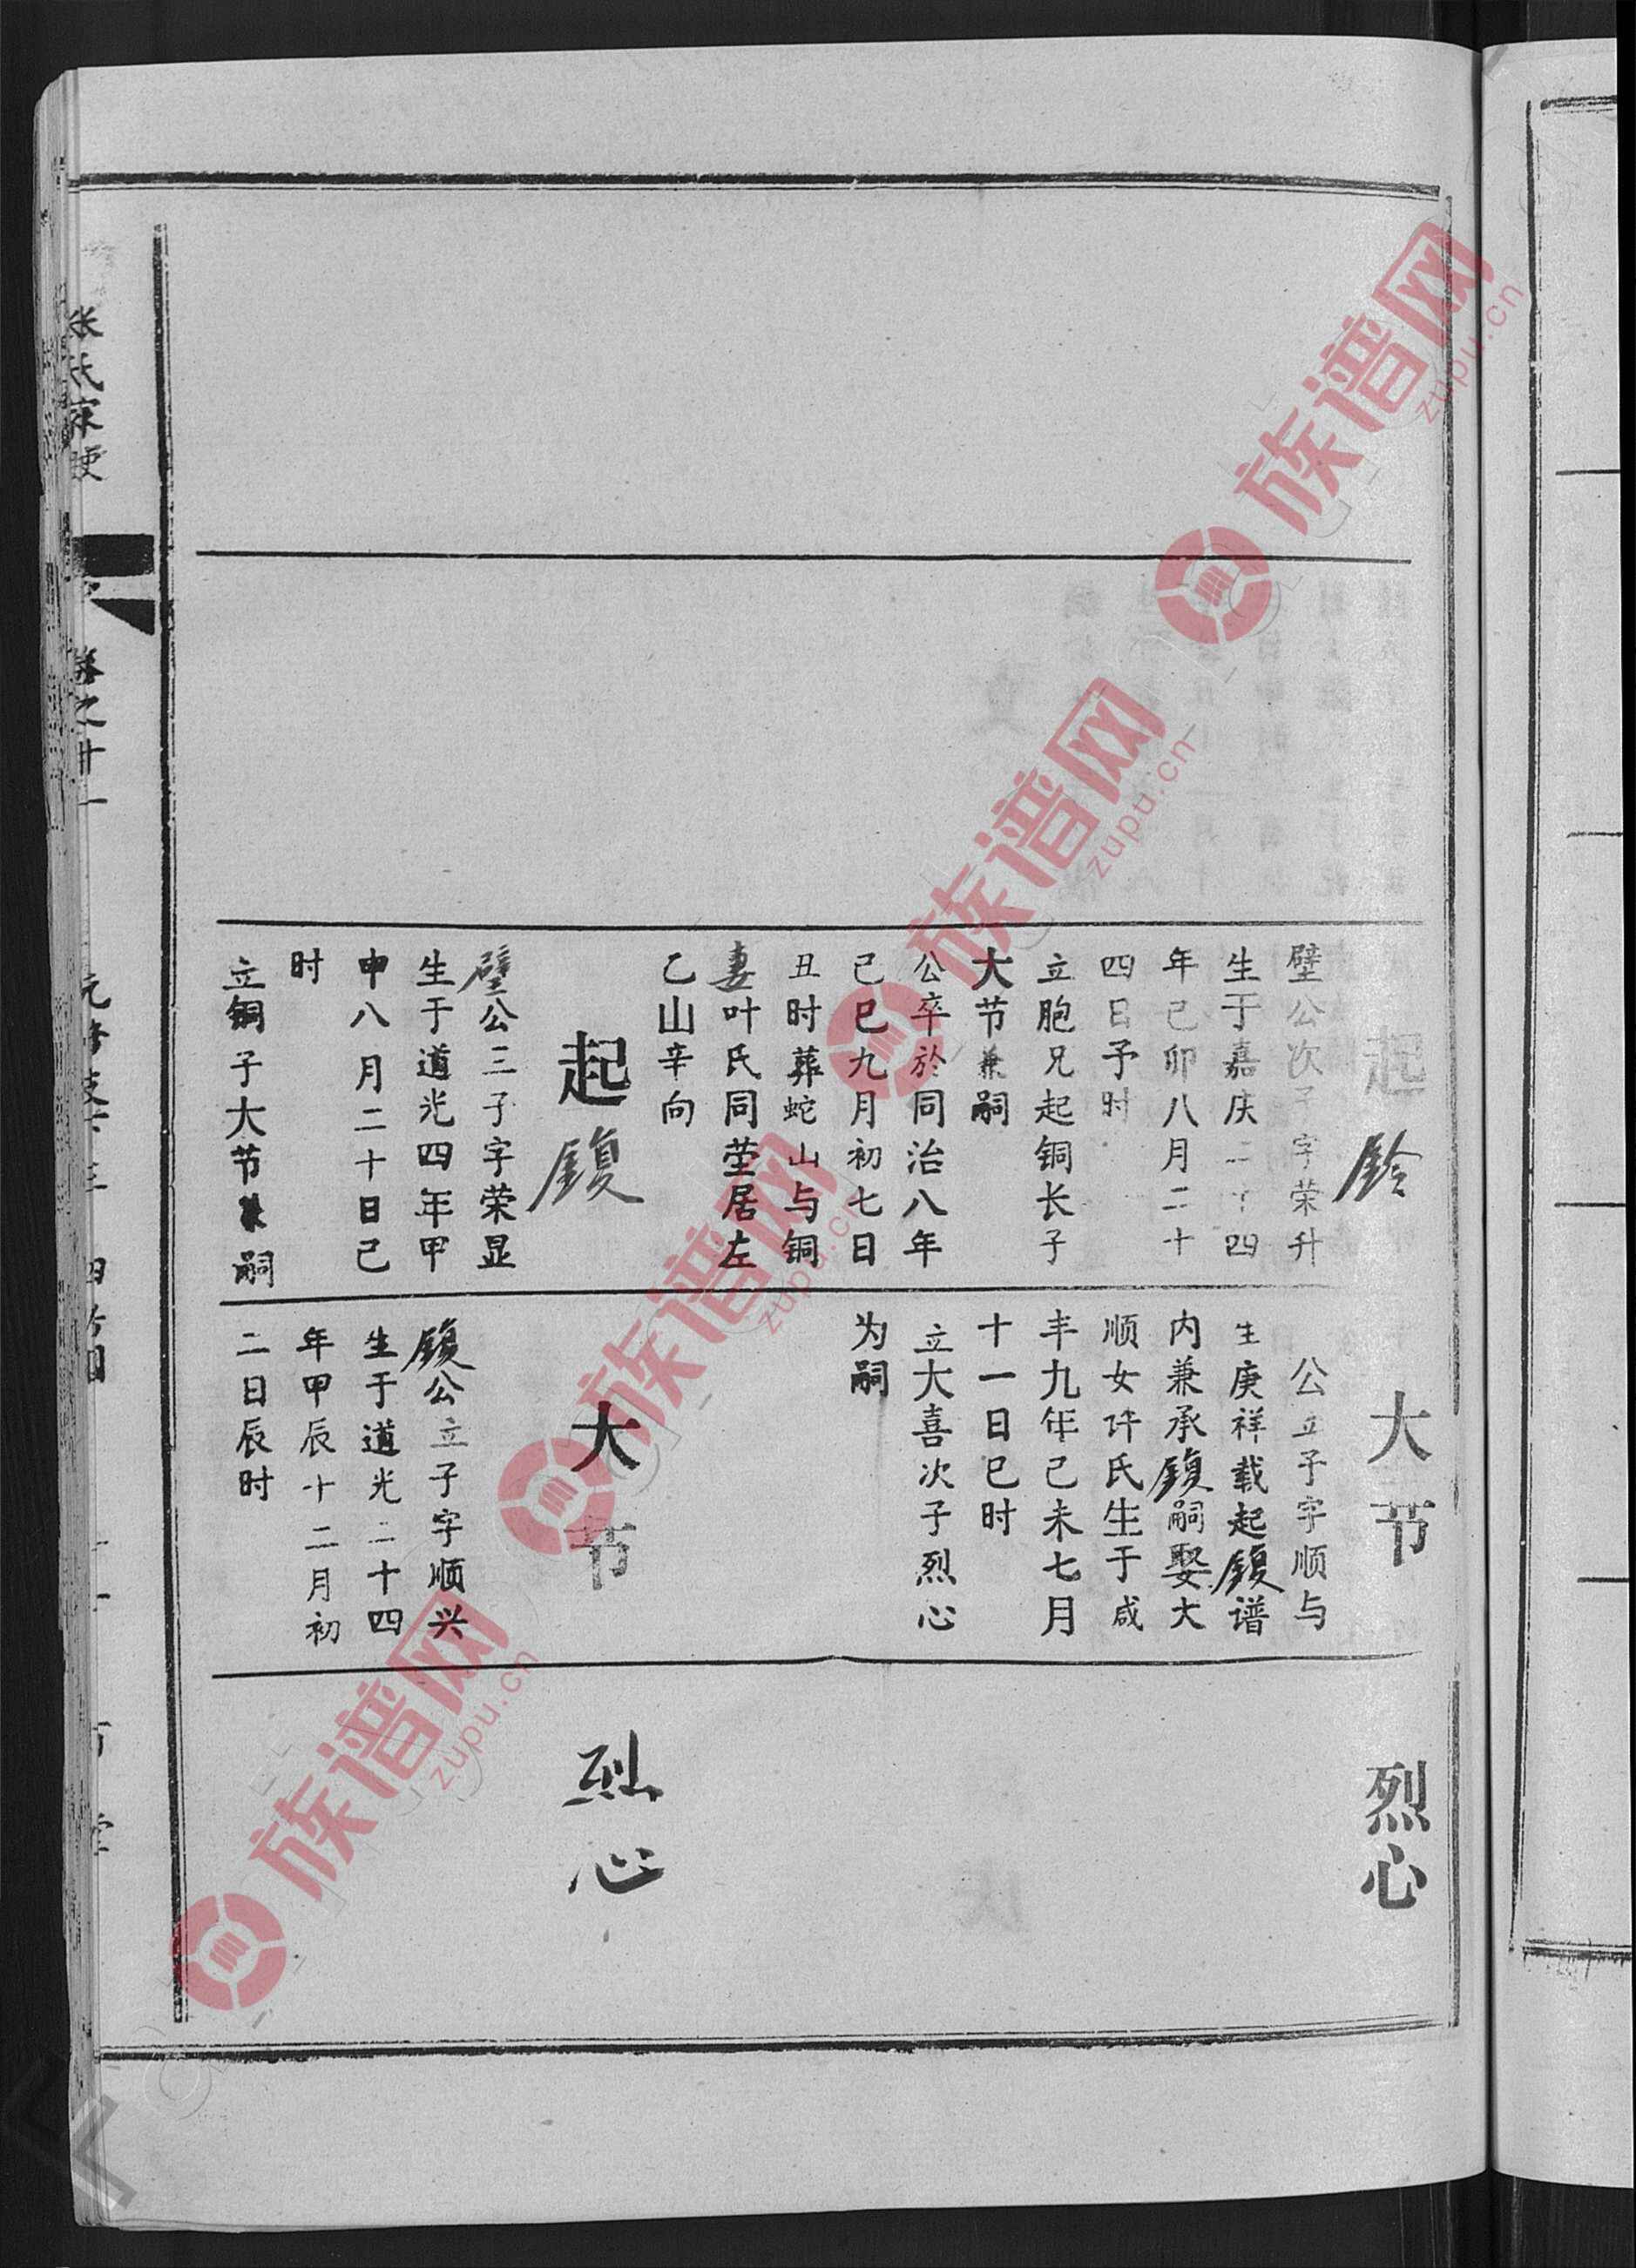 起铃
璧公次子字荣升
生于嘉庆二十四
年己卯八月二十
四日予时
立胞兄起铜长子
大节兼嗣
公卒於同治八年
己巳九月初七日
丑时葬蛇山与铜
妻叶氏同茔居左
乙山辛向
起鍑
璧公三子字荣显
生于道光四年甲
申八月二十日己
时
立铜子大节兼嗣
大节
公立子字顺与
生庚祥载起鍑谱
内兼承鍑嗣娶大
顺女许氏生于咸
丰九年己未七月
十一日巳时
立大喜次子烈心
为嗣
大节
鍑公立子字顺兴
生于道光二十四
年甲辰十二月初
二日辰时
烈心
烈心
张氏家
卷之廿一
族谱网
zupu.cn
族谱网
zupu.cn
族谱网
zupu.cn
族谱网
zupu.cn